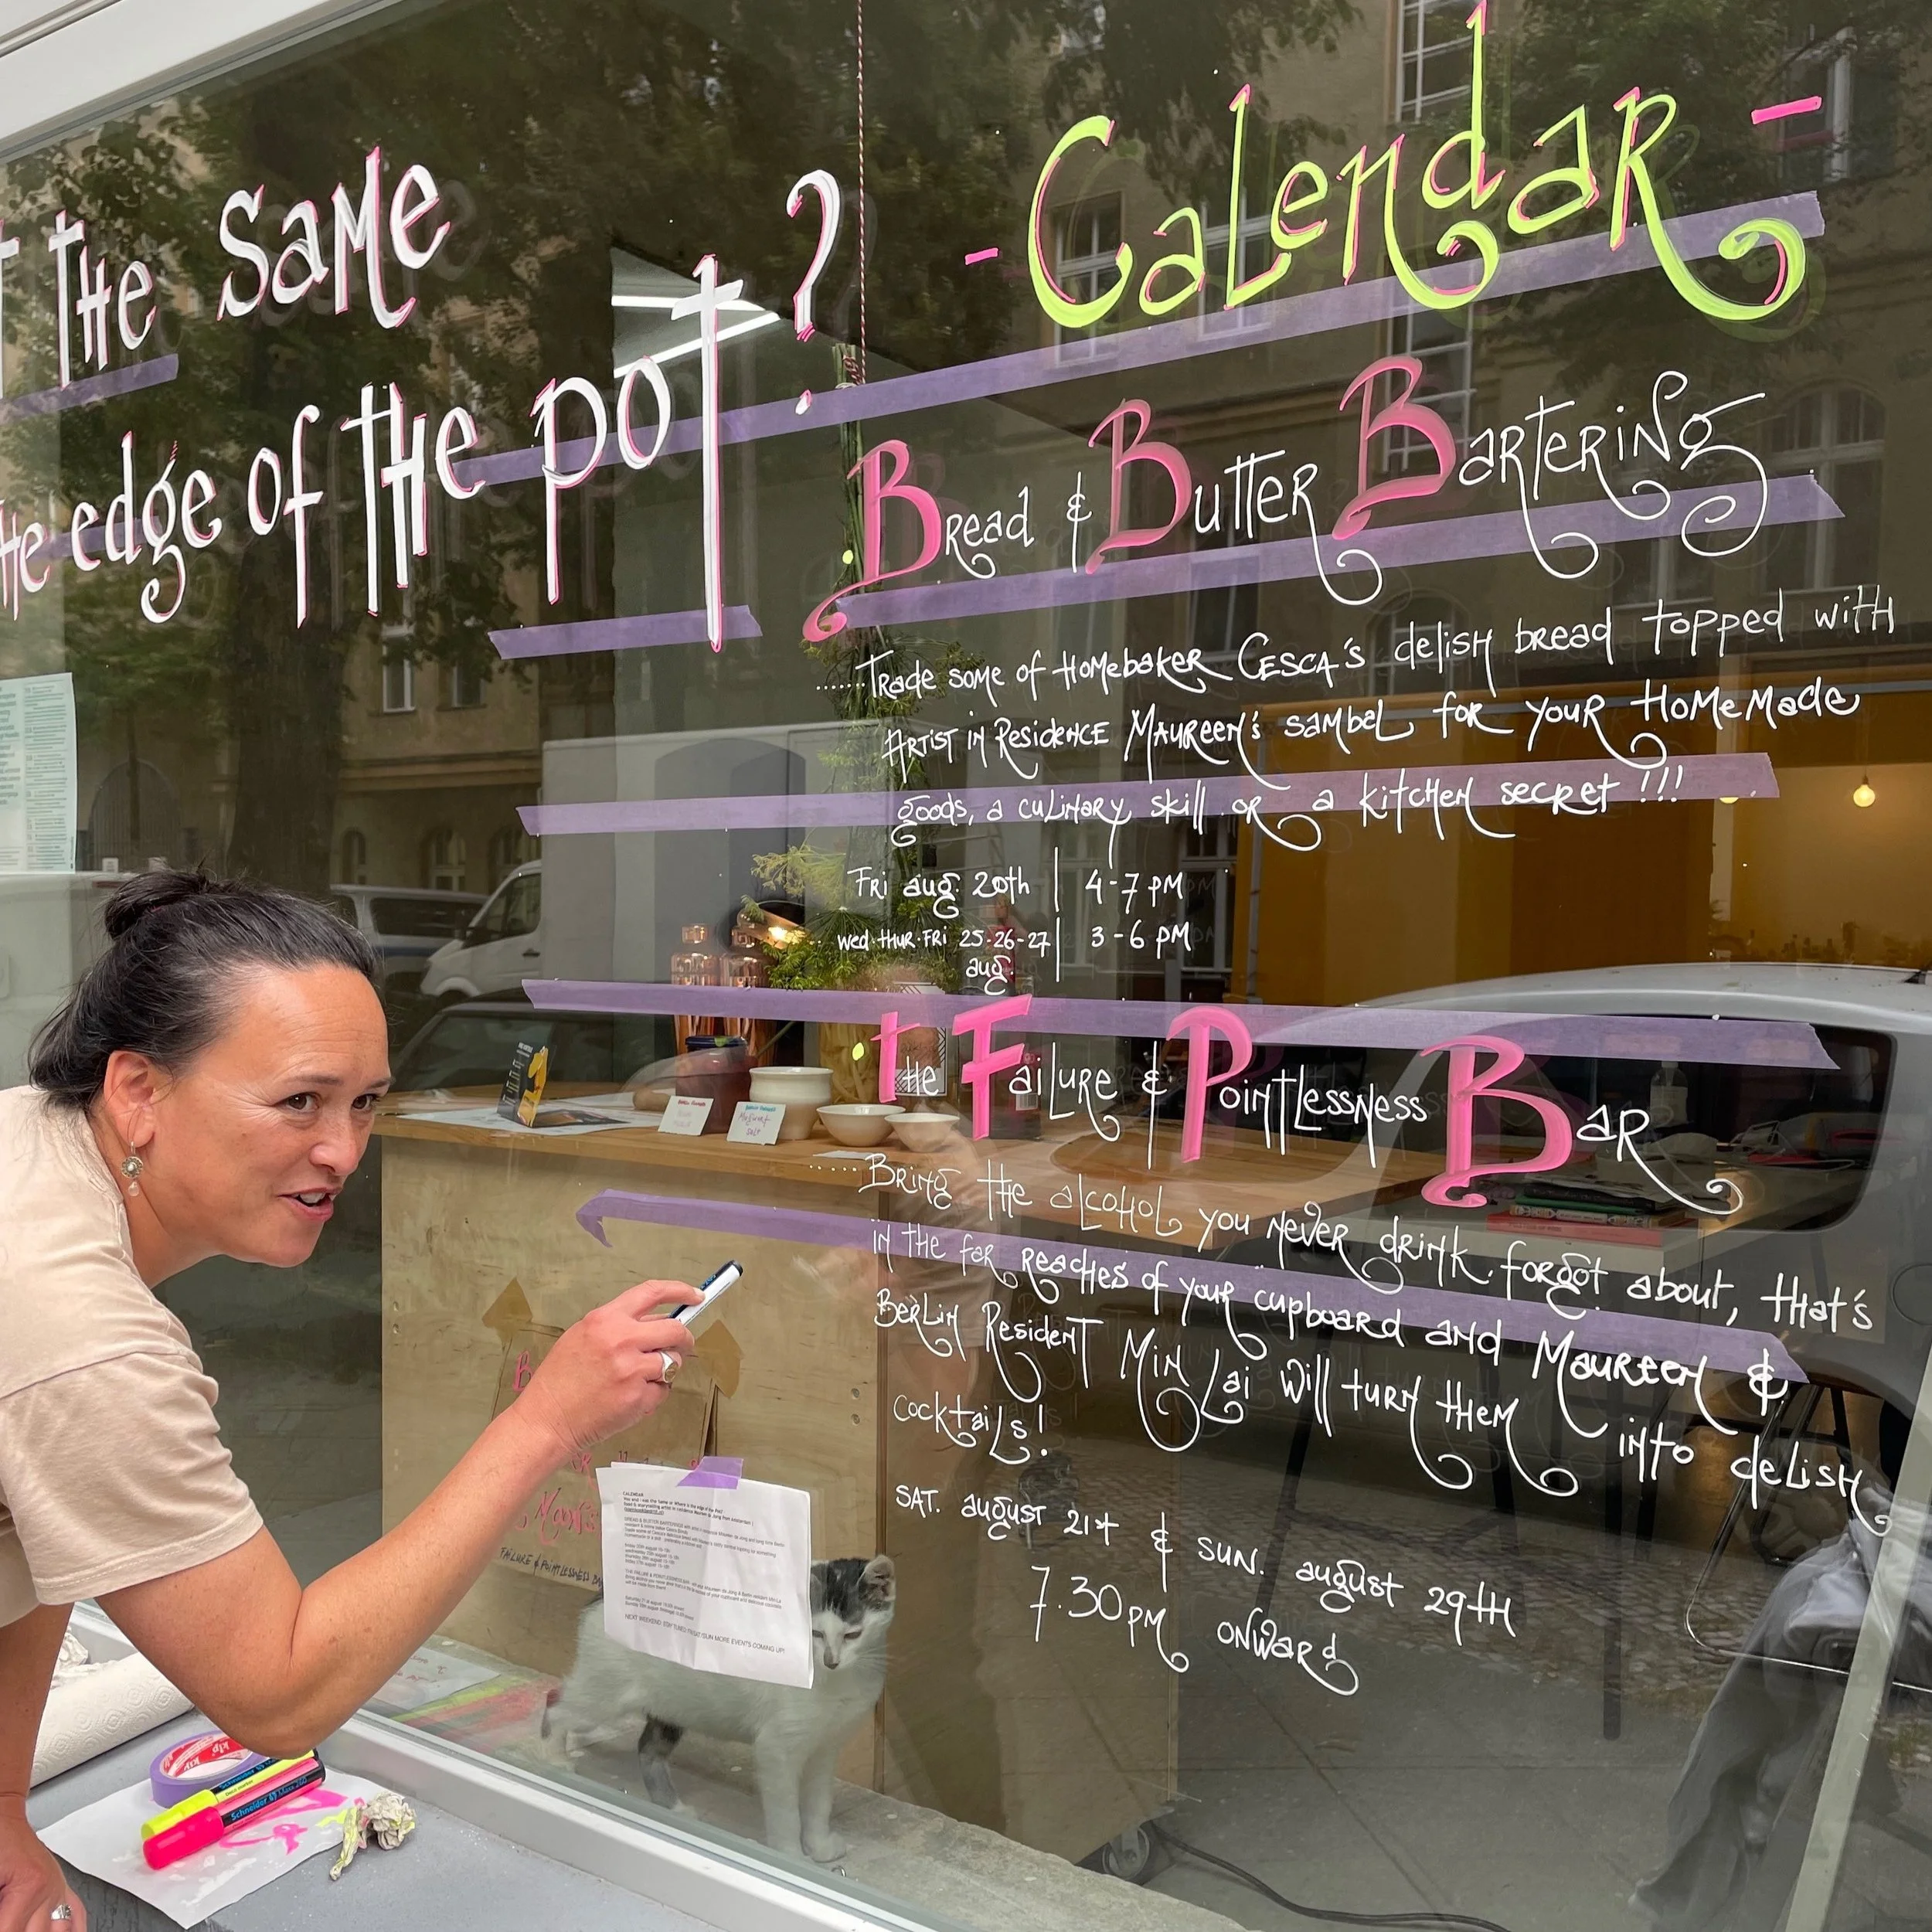 THE SAME
the edge of THE POT?
- Calendar -
Bread & Butter Bartering
......Trade some of Homebaker Cesca's delish bread topped with
Artist in Residence Maureen's sambal for your Homemade
goods, a culinary skill or a kitchen secret!!!
Fri aug. 20th | 4-7 PM
Wed·Thur·Fri 25-26-27 | 3-6 PM
aug.
The Failure & Pointlessness Bar
......Bring the alcohol you never drink, forgot about, that's
in the far reaches of your cupboard and Maureen &
Berlin Resident Min Lai will turn them into delish
cocktails!
SAT. august 21st & SUN. august 29TH
7.30PM onward
CALENDAR
NEXT WEEKEND (STAY TUNED) FRI/SAT/SUN MORE EVENTS COMING UP!
FAILURE & POINTLESSNESS BA
Schneider
Schneider Maxx 260